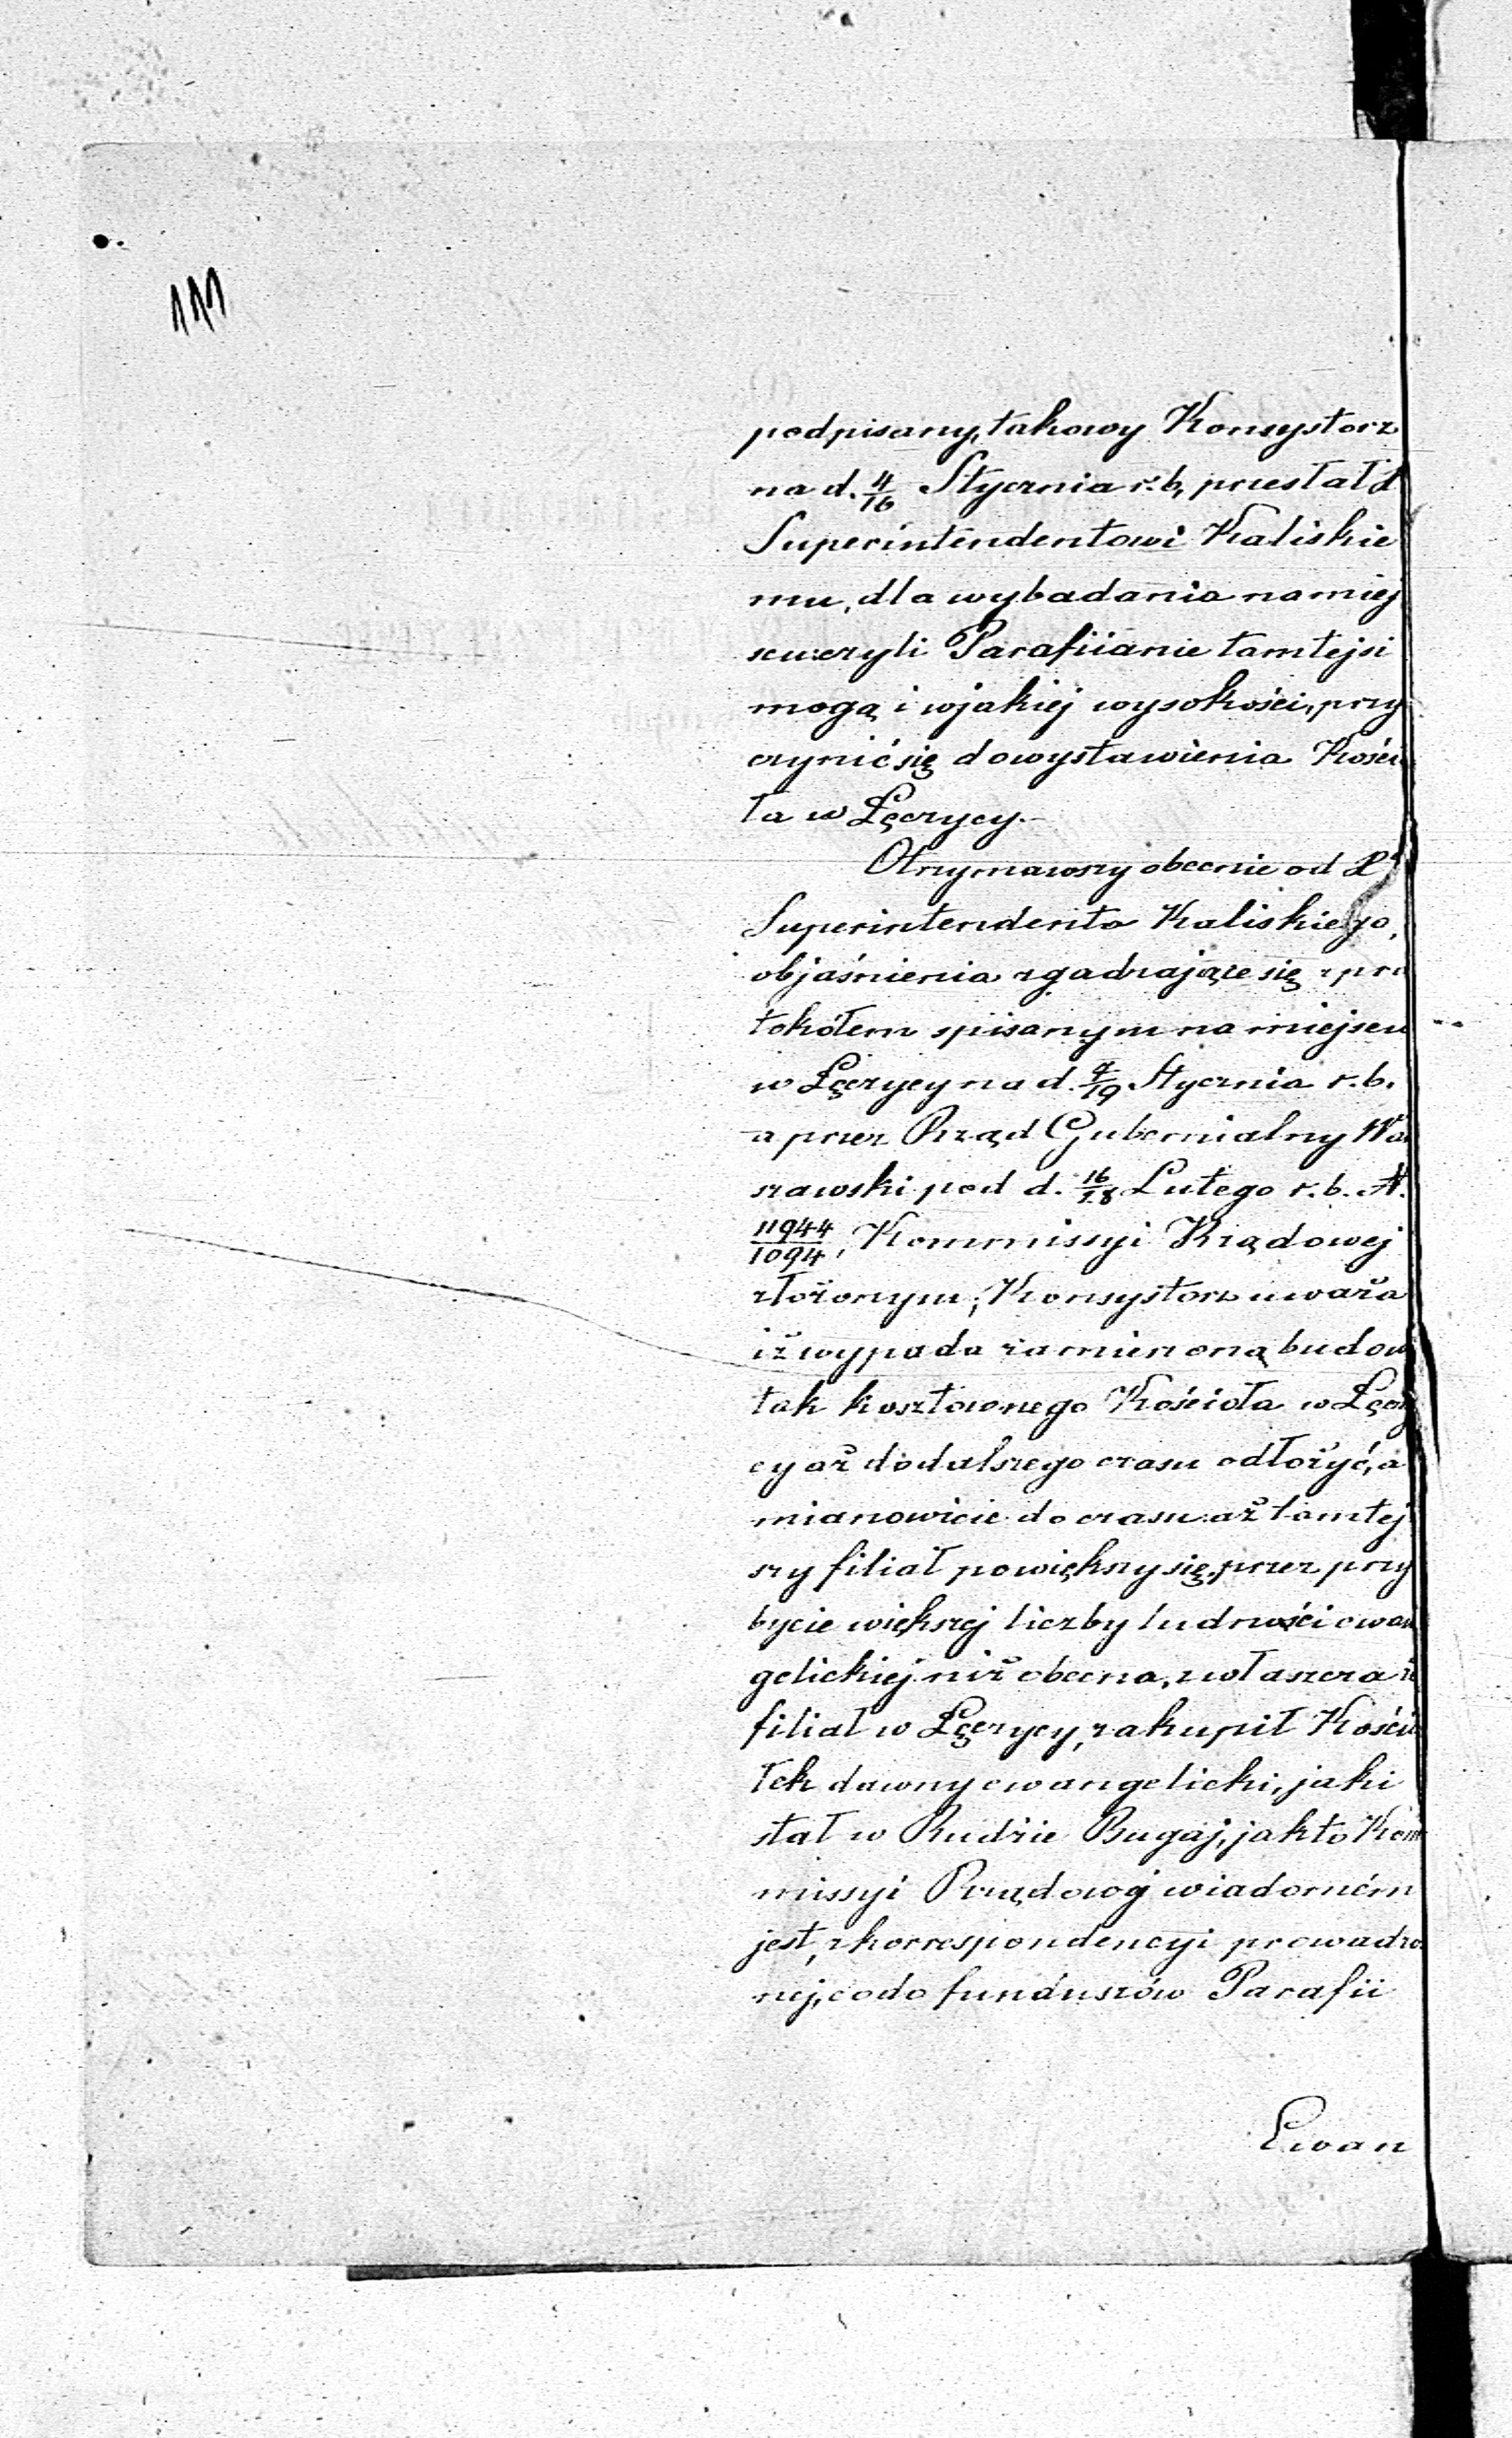 111
podpisany, takowy Konsystorz
na d. 4/16 Stycznia r. b, przesłał
Superintendentowi Kaliskie
mu, dla wybadania na miej
scu: czyli Parafiianie tamtejsi
mogą i w jakiej wysokości, przy
czynić się do wystawienia Kości
ła w Łęczycy.-
Otrzymawszy obecnie od
Superintendenta Kaliskiego,
objaśnienia zgadzające się z pro
tokółem spisanym na miejscu
w Łęczycy na d. 7/19 Stycznia r. b.
a przez Rząd Gubernialny Wa
szawski pod d. 16/28 Lutego r. b. N.
11944/1094, Kommissyi Rządowej
złożonym; Konsystorz uważa
iż wypada zamierzoną budow
tak kosztownego Kościoła w Łęczy
cy aż do dalszego czasu odłożyć, a
mianowicie do czasu: aż tamtej
szy filiał powiększy się, przez przy
bycie większej liczby ludności ewan
gelickiej niż obecna, zwłaszcza
filiał w Łęczycy, zakupił Kościo
łek dawny ewangelicki, jaki
stał w Rudzie Bugaj, jak to Kom
missyi Rządowej wiadomém
jest, z korrespondencyi prowadzo
nej, co do funduszów Parafii
Ewan